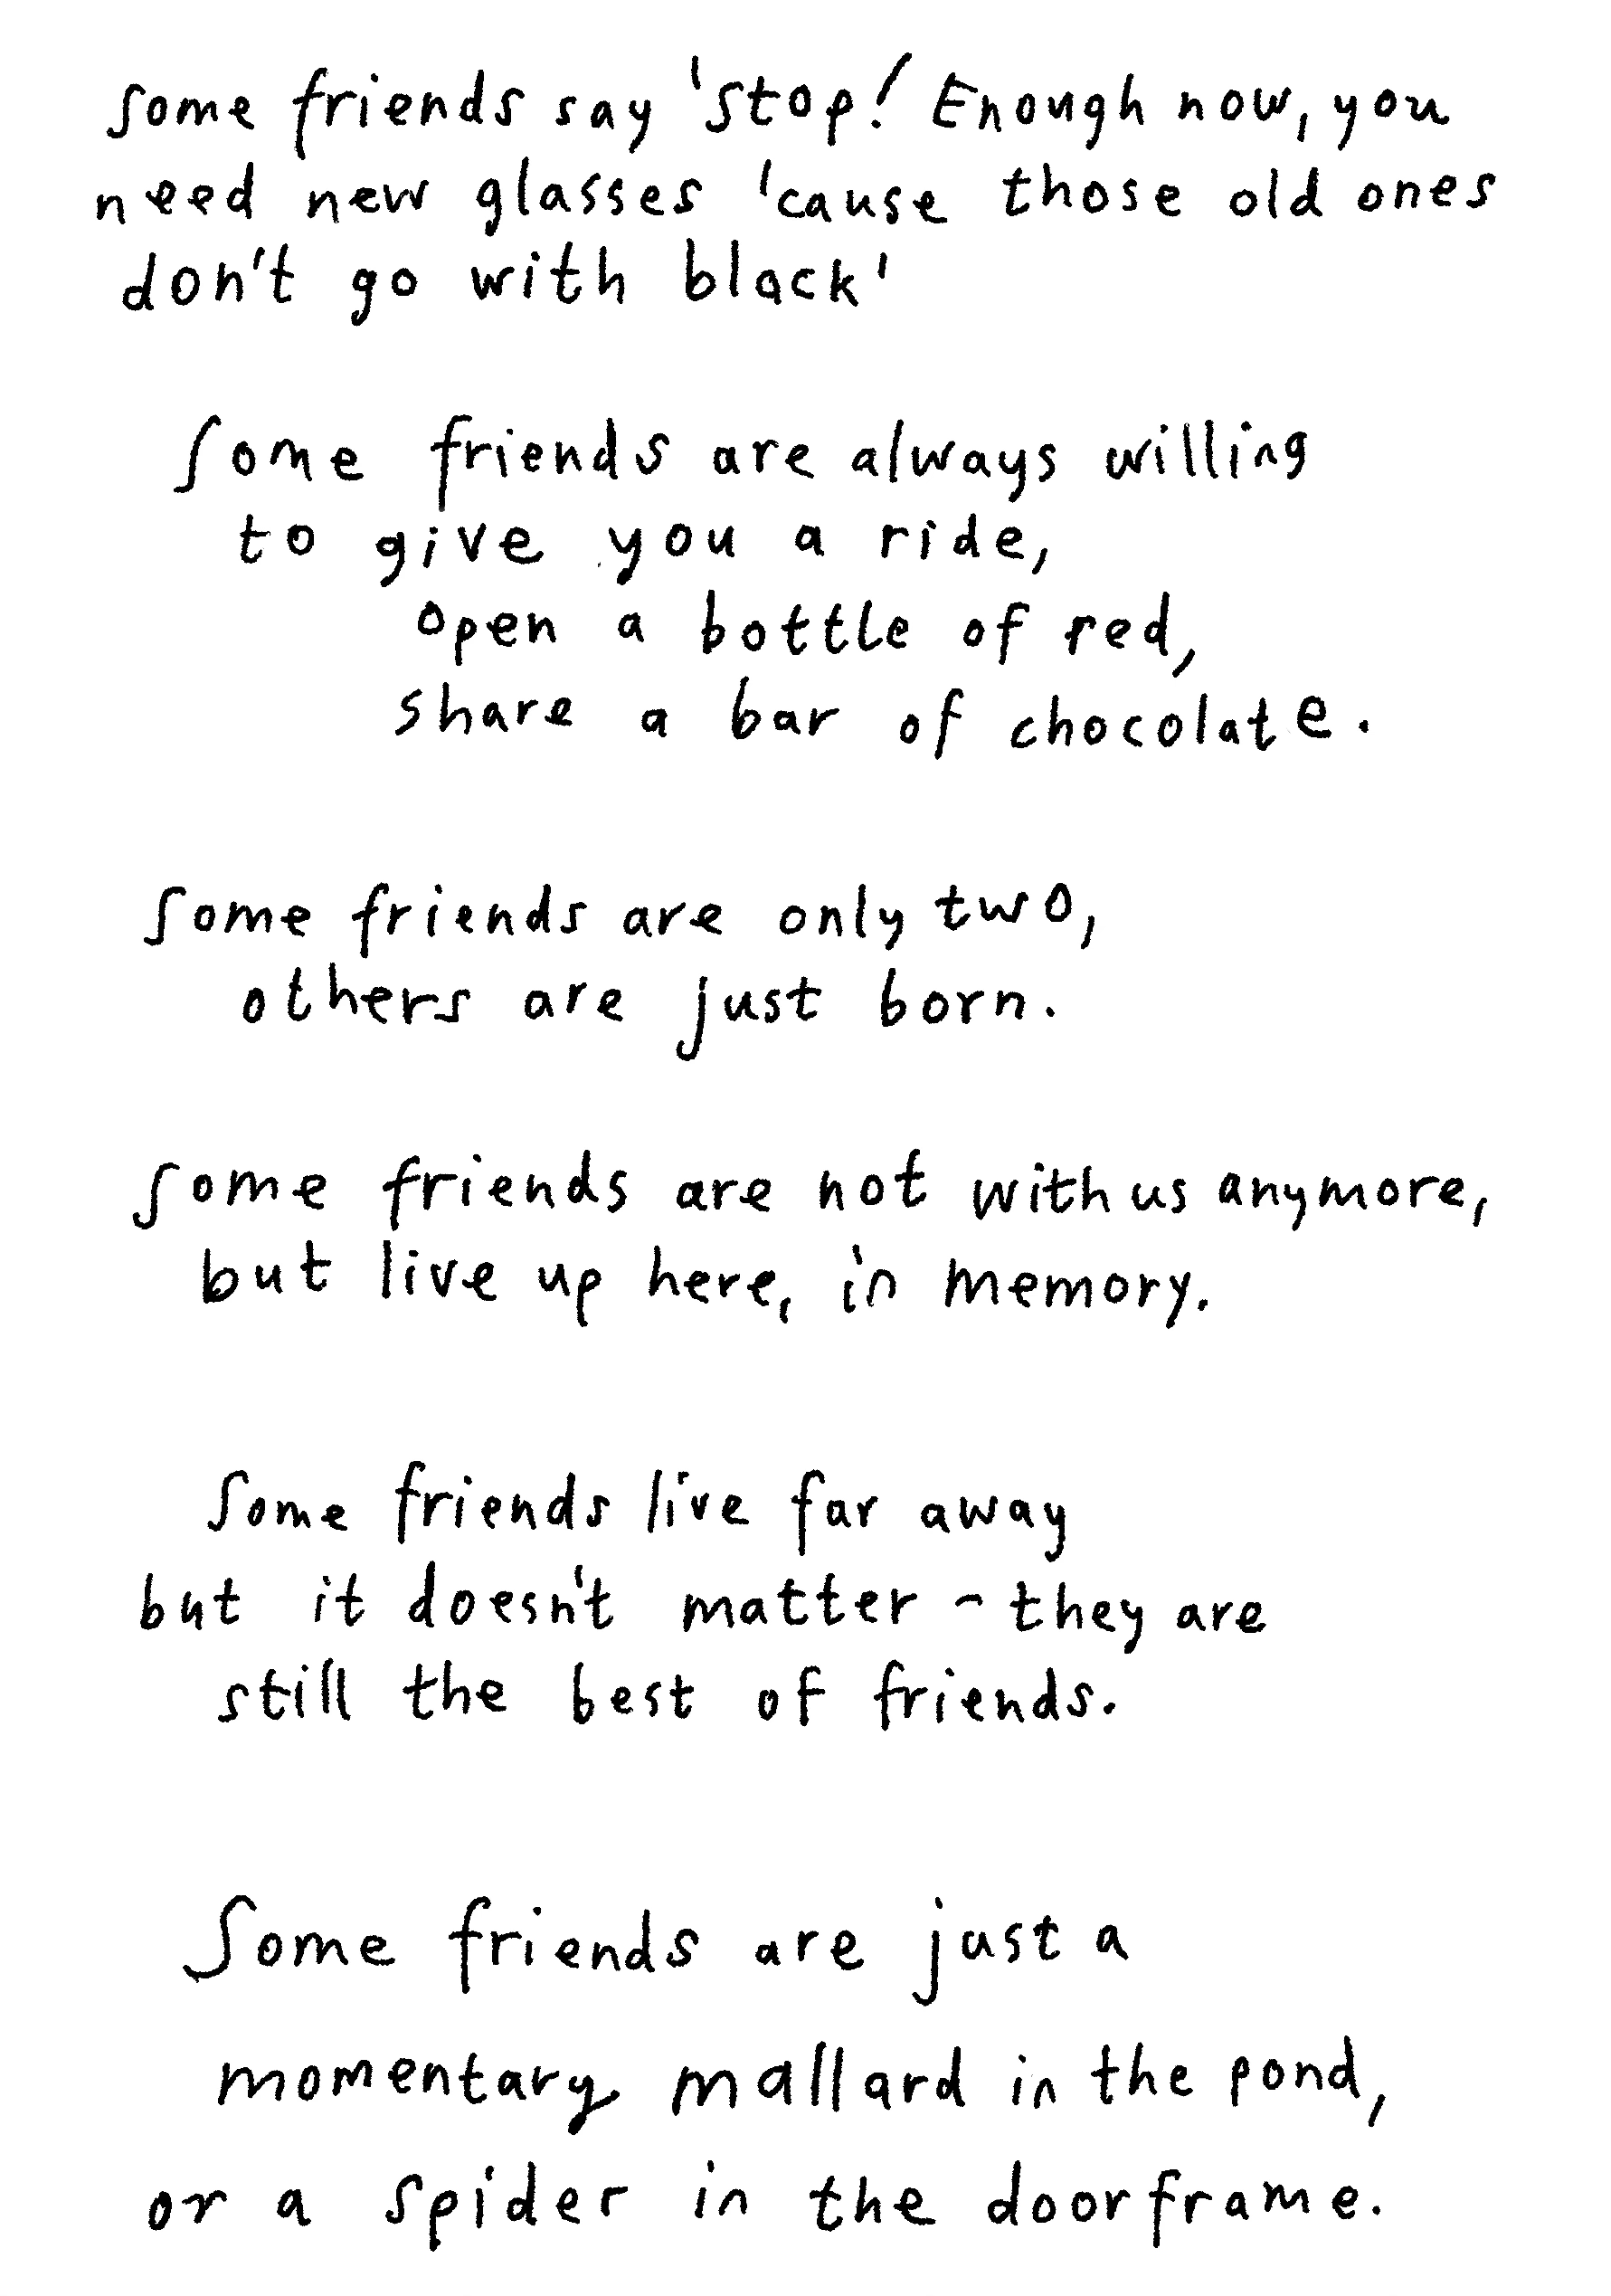 Some friends say 'Stop! Enough now, you
need new glasses 'cause those old ones
don't go with black'
Some friends are always willing
to give you a ride,
open a bottle of red,
share a bar of chocolate.
Some friends are only two,
others are just born.
Some friends are not with us anymore,
but live up here, in memory.
Some friends live far away
but it doesn't matter - they are
still the best of friends.
Some friends are just a
momentary mallard in the pond,
or a spider in the doorframe.